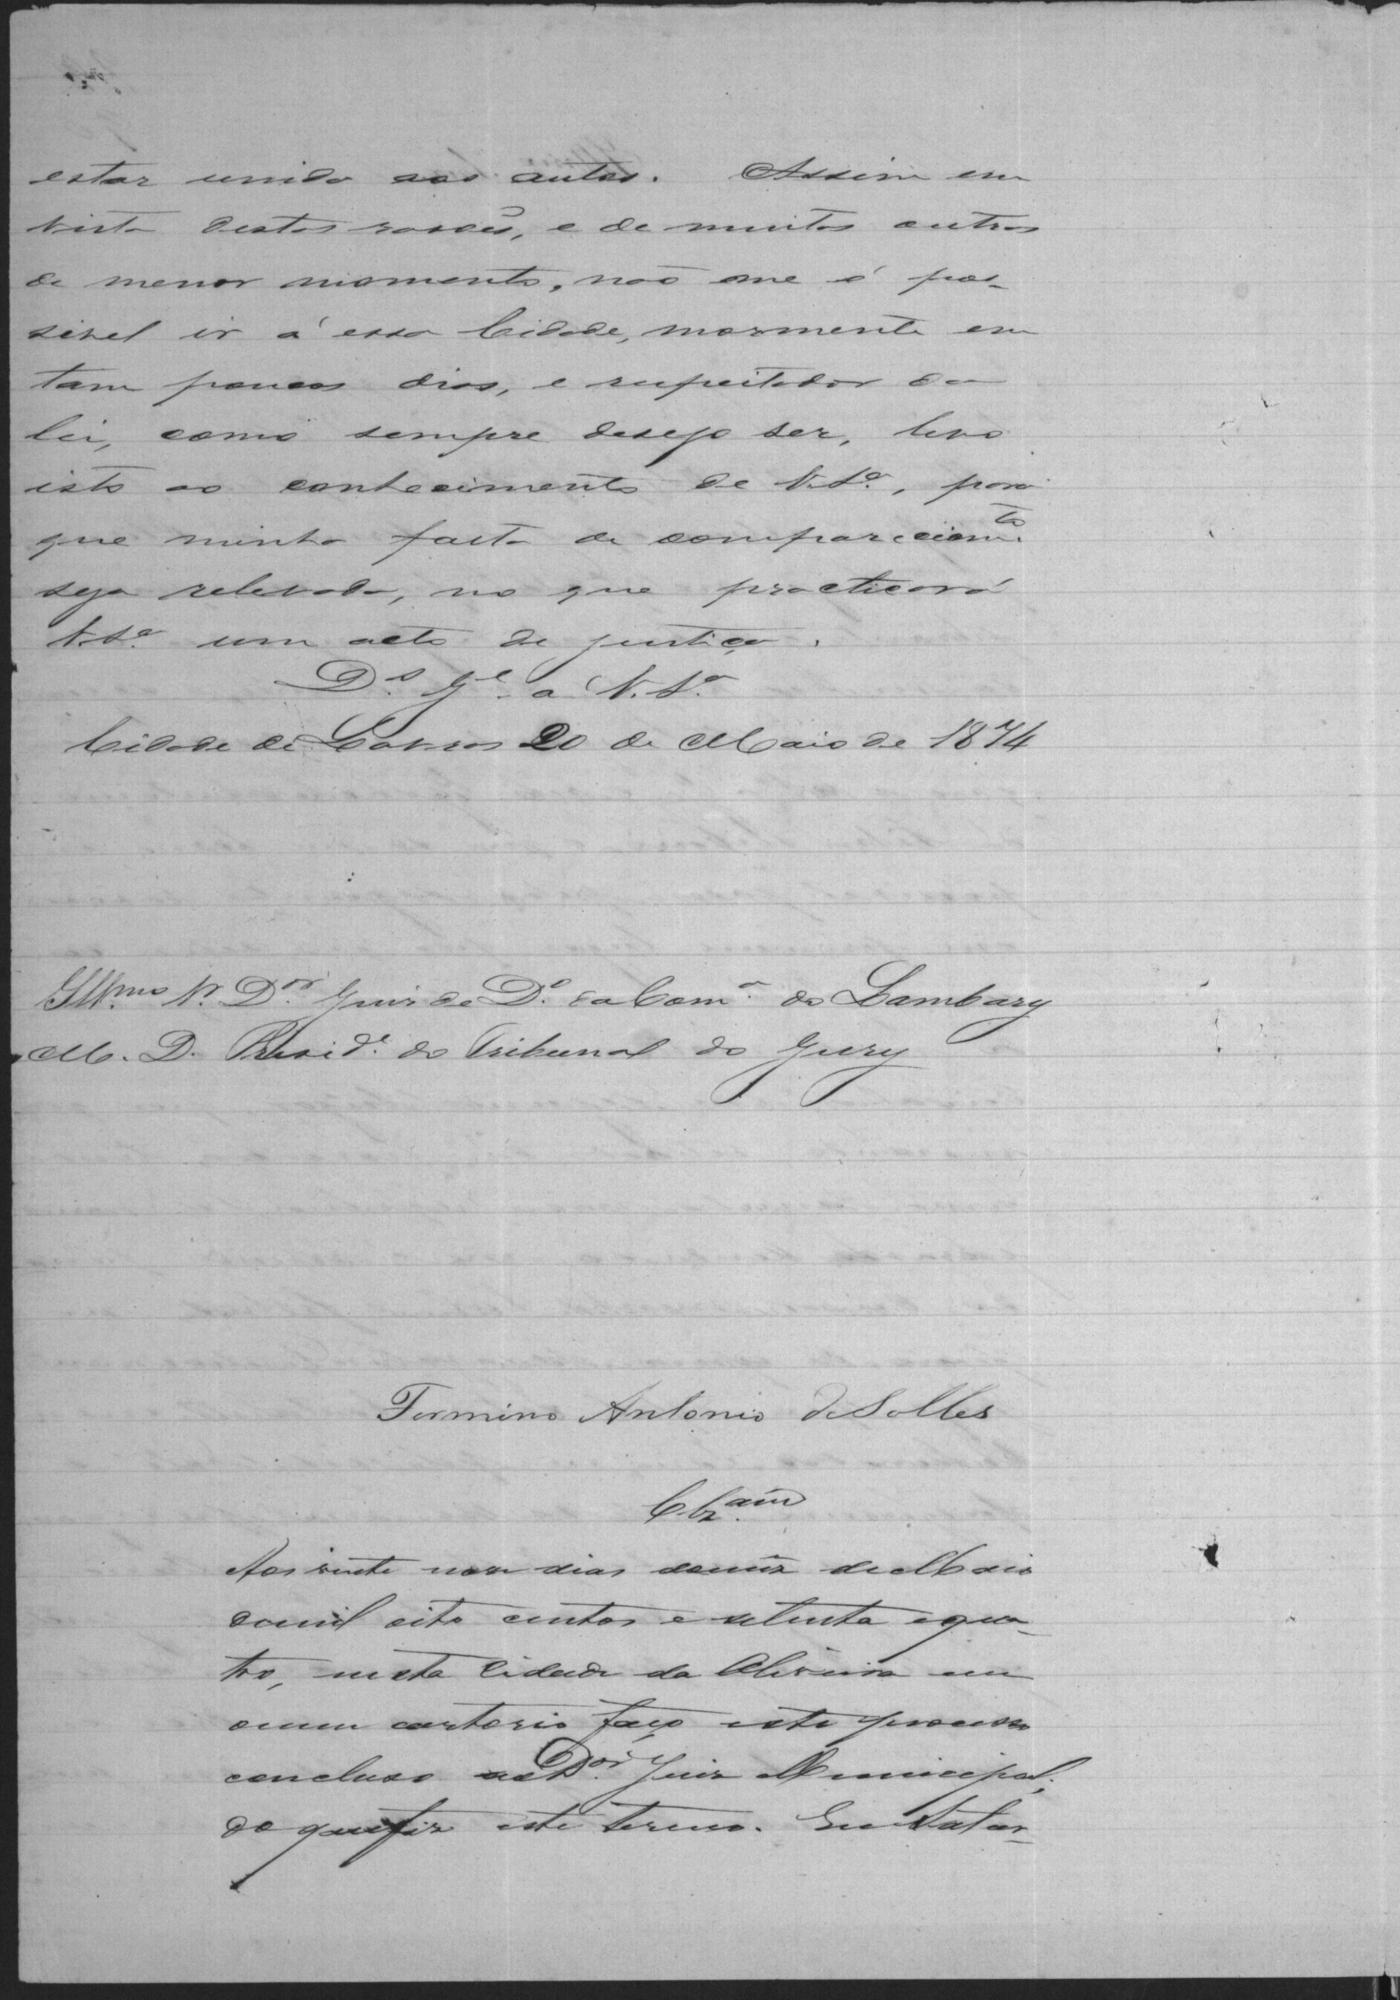 estar unido aos autos. Assim em
vista destas rasoẽs, e de muitas outras
de menor momento, não me é pos-
sivel ir á essa Cidade, mormente em
tam poucos dias, e respeitador da
lei, como sempre desejo ser, levo
isto ao conhecimento de V. Sª, para
que minha falta de comparecimto
seja relevada, no que practicará
V. Sª um acto de justiça.
Ds Ge a V. Sª
Cidade de Lavras 20 de Maio de 1874
Illmo Sr Dor Juis de Do da Comª do Lambary
M. D. Preside do Tribunal do Jury
Formino Antonio de Salles
Clzam
Aos vinte nove dias do mez de Maio
do mil oito centos e setenta e qua-
tro, nesta Cidade da Oliveira em
o meu cartorio faço este processo
concluso ao Dor Juiz Municipal;
do que fiz este termo. Eu